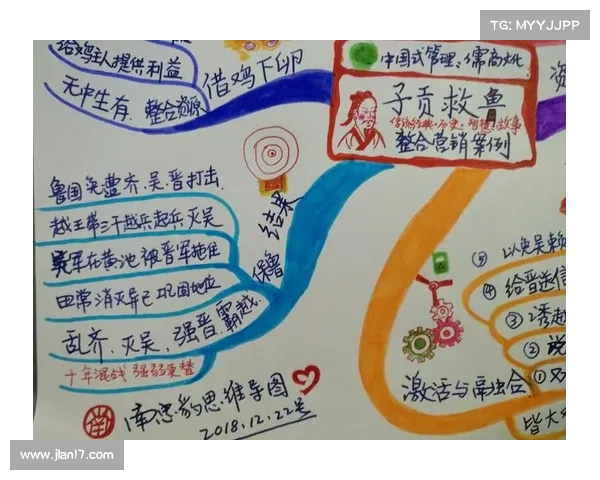 TG: MYYJJPP
给鸡主人提供利益
无中生有 整合资源
借鸡下卵
中国式管理:儒商文化
子贡救鲁
传统经典·历史·智慧·故事
整合营销案例
资
鲁国免遭齐.吴.晋打击.
越王带三千越兵起兵灭吴
吴军在黄池被晋军拖住
田常消灭异己巩固地位
乱齐.灭吴.强晋.霸越.
十年混战 强弱更替
结果
保鲁
⑤ 以免吴赖
④ 给晋送信
③ 诱越
② 说
①
皆大
激活与
南忠豹思维导图
2018.12.22号
www.jlanl7.com